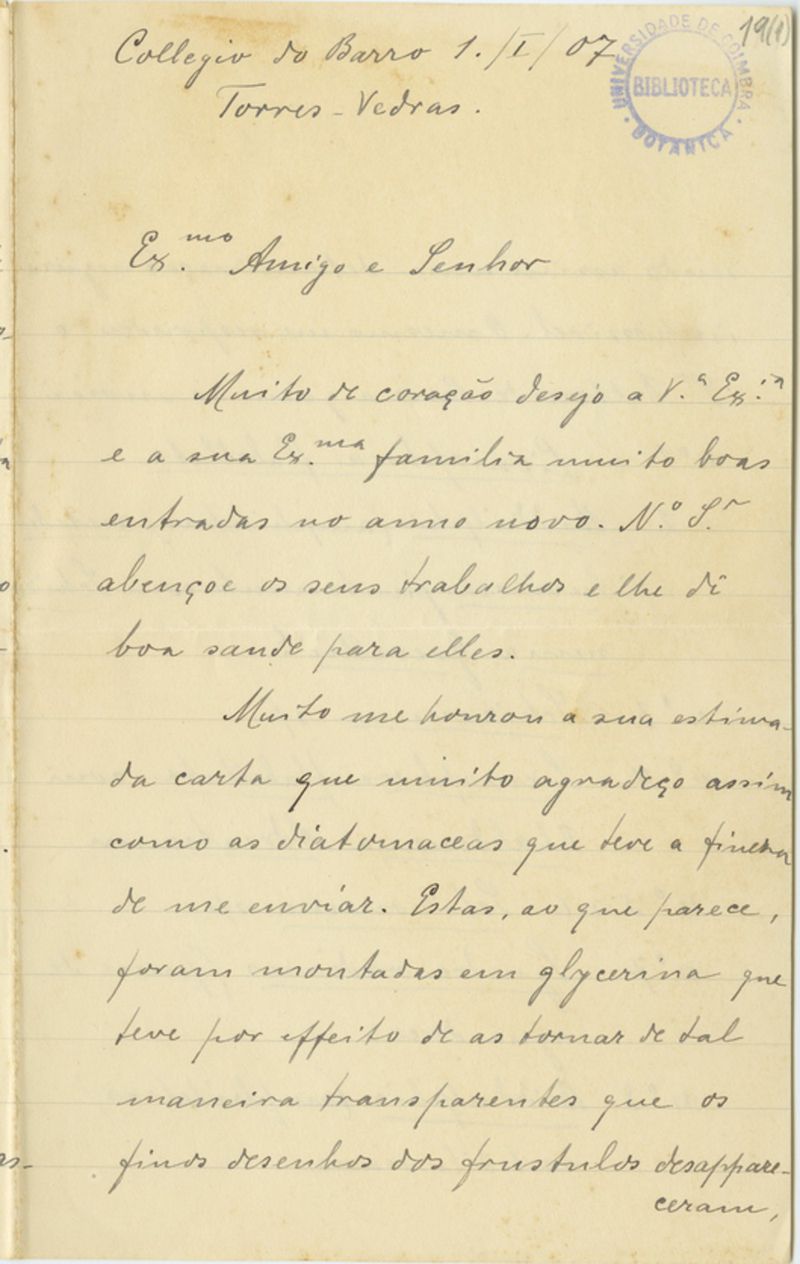 19(1)
UNIVERSIDADE DE COIMBRA
BIBLIOTECA
BOTANICA
Collegio do Barro 1./I/07
Torres-Vedras.
Ex.mo Amigo e Senhor
Muito de coração desejo a V.a Ex.a
e a sua Ex.ma familia muito boas
entradas no anno novo. N.o S.r
abençoe os seus trabalhos e lhe dê
boa saude para elles.
Muito me honrou a sua estima-
da carta que muito agradeço assim
como as diatomaceas que teve a fineza
de me enviar. Estas, ao que parece,
foram montadas em glycerina que
teve por effeito de as tornar de tal
maneira transparentes que os
finos desenhos dos frustulos desappare-
ceram,